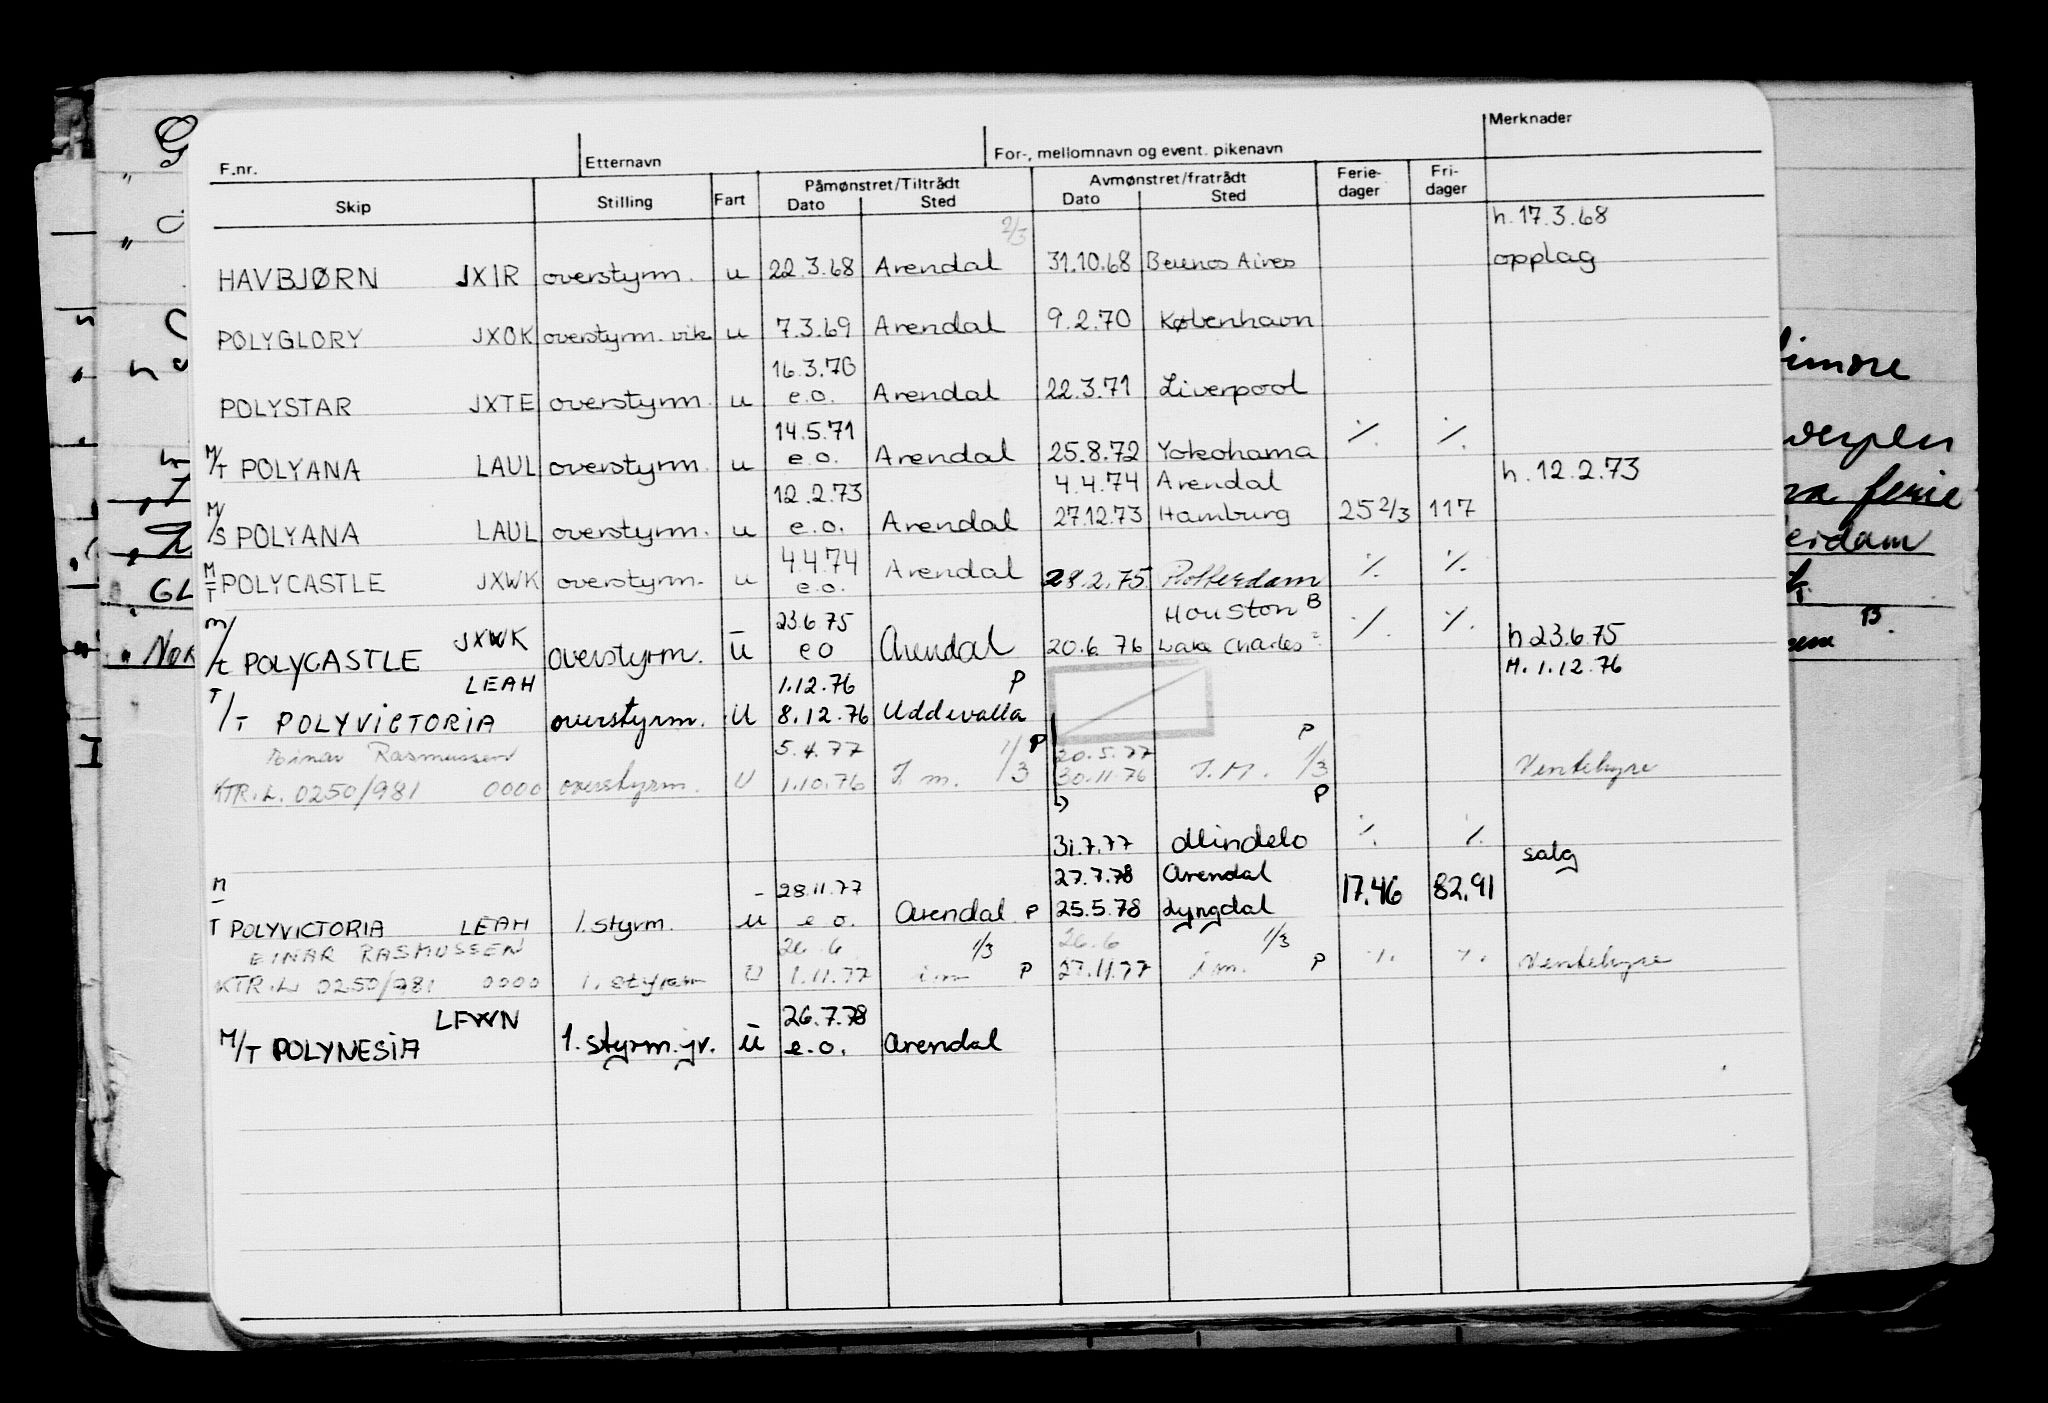 F.nr. Etternavn For-, mellomnavn og event. pikenavn Merknader
Skip Stilling Fart Påmønstret/Tiltrådt Avmønstret/fratrådt Ferie- dager Fri- dager
Dato Sted Dato Sted
2/3 h. 17.3.68
HAVBJØRN JXIR overstyrm. u 22.3.68 Arendal 31.10.68 Buenos Aires opplag
POLYGLORY JXOK overstyrm. vik u 7.3.69 Arendal 9.2.70 København
16.3.70
POLYSTAR JXTE overstyrm. u e.o. Arendal 22.3.71 Liverpool
14.5.71
M/T POLYANA LAUL overstyrm. u e.o. Arendal 25.8.72 Yokohama ./. ./.
12.2.73 4.4.74 Arendal h. 12.2.73
M/S POLYANA LAUL overstyrm. u e.o. Arendal 27.12.73 Hamburg 25 2/3 117
4.4.74
M/T POLYCASTLE JXWK overstyrm. u e.o. Arendal 28.2.75 Rotterdam ./. ./.
23.6.75 Houston B
M/t POLYCASTLE JXWK overstyrm. u e o Arendal 20.6.76 Lake Charles ./. ./. h 23.6.75
LEAH 1.12.76 P H. 1.12.76
T/T POLYVICTORIA overstyrm. U 8.12.76 Uddevalla
Einar Rasmussen 5.4.77 P 20.5.77 P
KTR.L. 0250/981 0000 overstyrm. U 1.10.76 I m. 1/3 30.11.76 I.M. 1/3 Ventehyre
P
31.7.77 Mindelo ./. ./.
28.11.77 27.7.78 Arendal salg
M/T POLYVICTORIA LEAH 1. styrm. u e.o. Arendal P 25.5.78 Lyngdal 17,46 82,91
EINAR RASMUSSEN 26.6 1/3 26.6 1/3
KTR.L. 0250/981 0000 1. styrm U 1.11.77 i m P 27.11.77 i m. P ./. ./. Ventehyre
LFWN 26.7.78
M/T POLYNESIA 1. styrm. jr. u e.o. Arendal